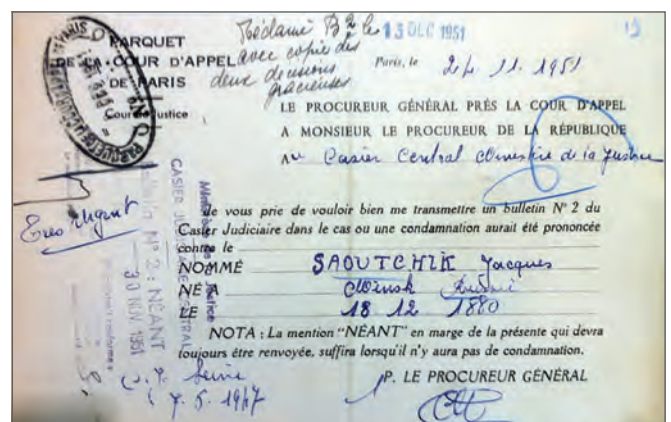 Réclamé B 2 le 13 DEC 1951
avec copie des
deux décisions
gracieuses
19
PARQUET
DE LA COUR D'APPEL
DE PARIS
Cour de Justice
Paris, le 24.11.1951
LE PROCUREUR GÉNÉRAL PRÈS LA COUR D'APPEL
A MONSIEUR LE PROCUREUR DE LA RÉPUBLIQUE
Au Casier Central Ministère de la Justice
Très urgent
Je vous prie de vouloir bien me transmettre un bulletin N° 2 du
Casier Judiciaire dans le cas ou une condamnation aurait été prononcée
contre le
NOMMÉ SAOUTCHIK Jacques
NÉ A Minsk Russie
LE 18 12 1880
NOTA : La mention "NÉANT" en marge de la présente qui devra
toujours être renvoyée, suffira lorsqu'il n'y aura pas de condamnation.
P. LE PROCUREUR GÉNÉRAL
Ministère de la Justice
CASIER JUDICIAIRE CENTRAL
Bulletin N° 2 : NÉANT
30 NOV 1951
c. j. Seine
7. 5. 1947